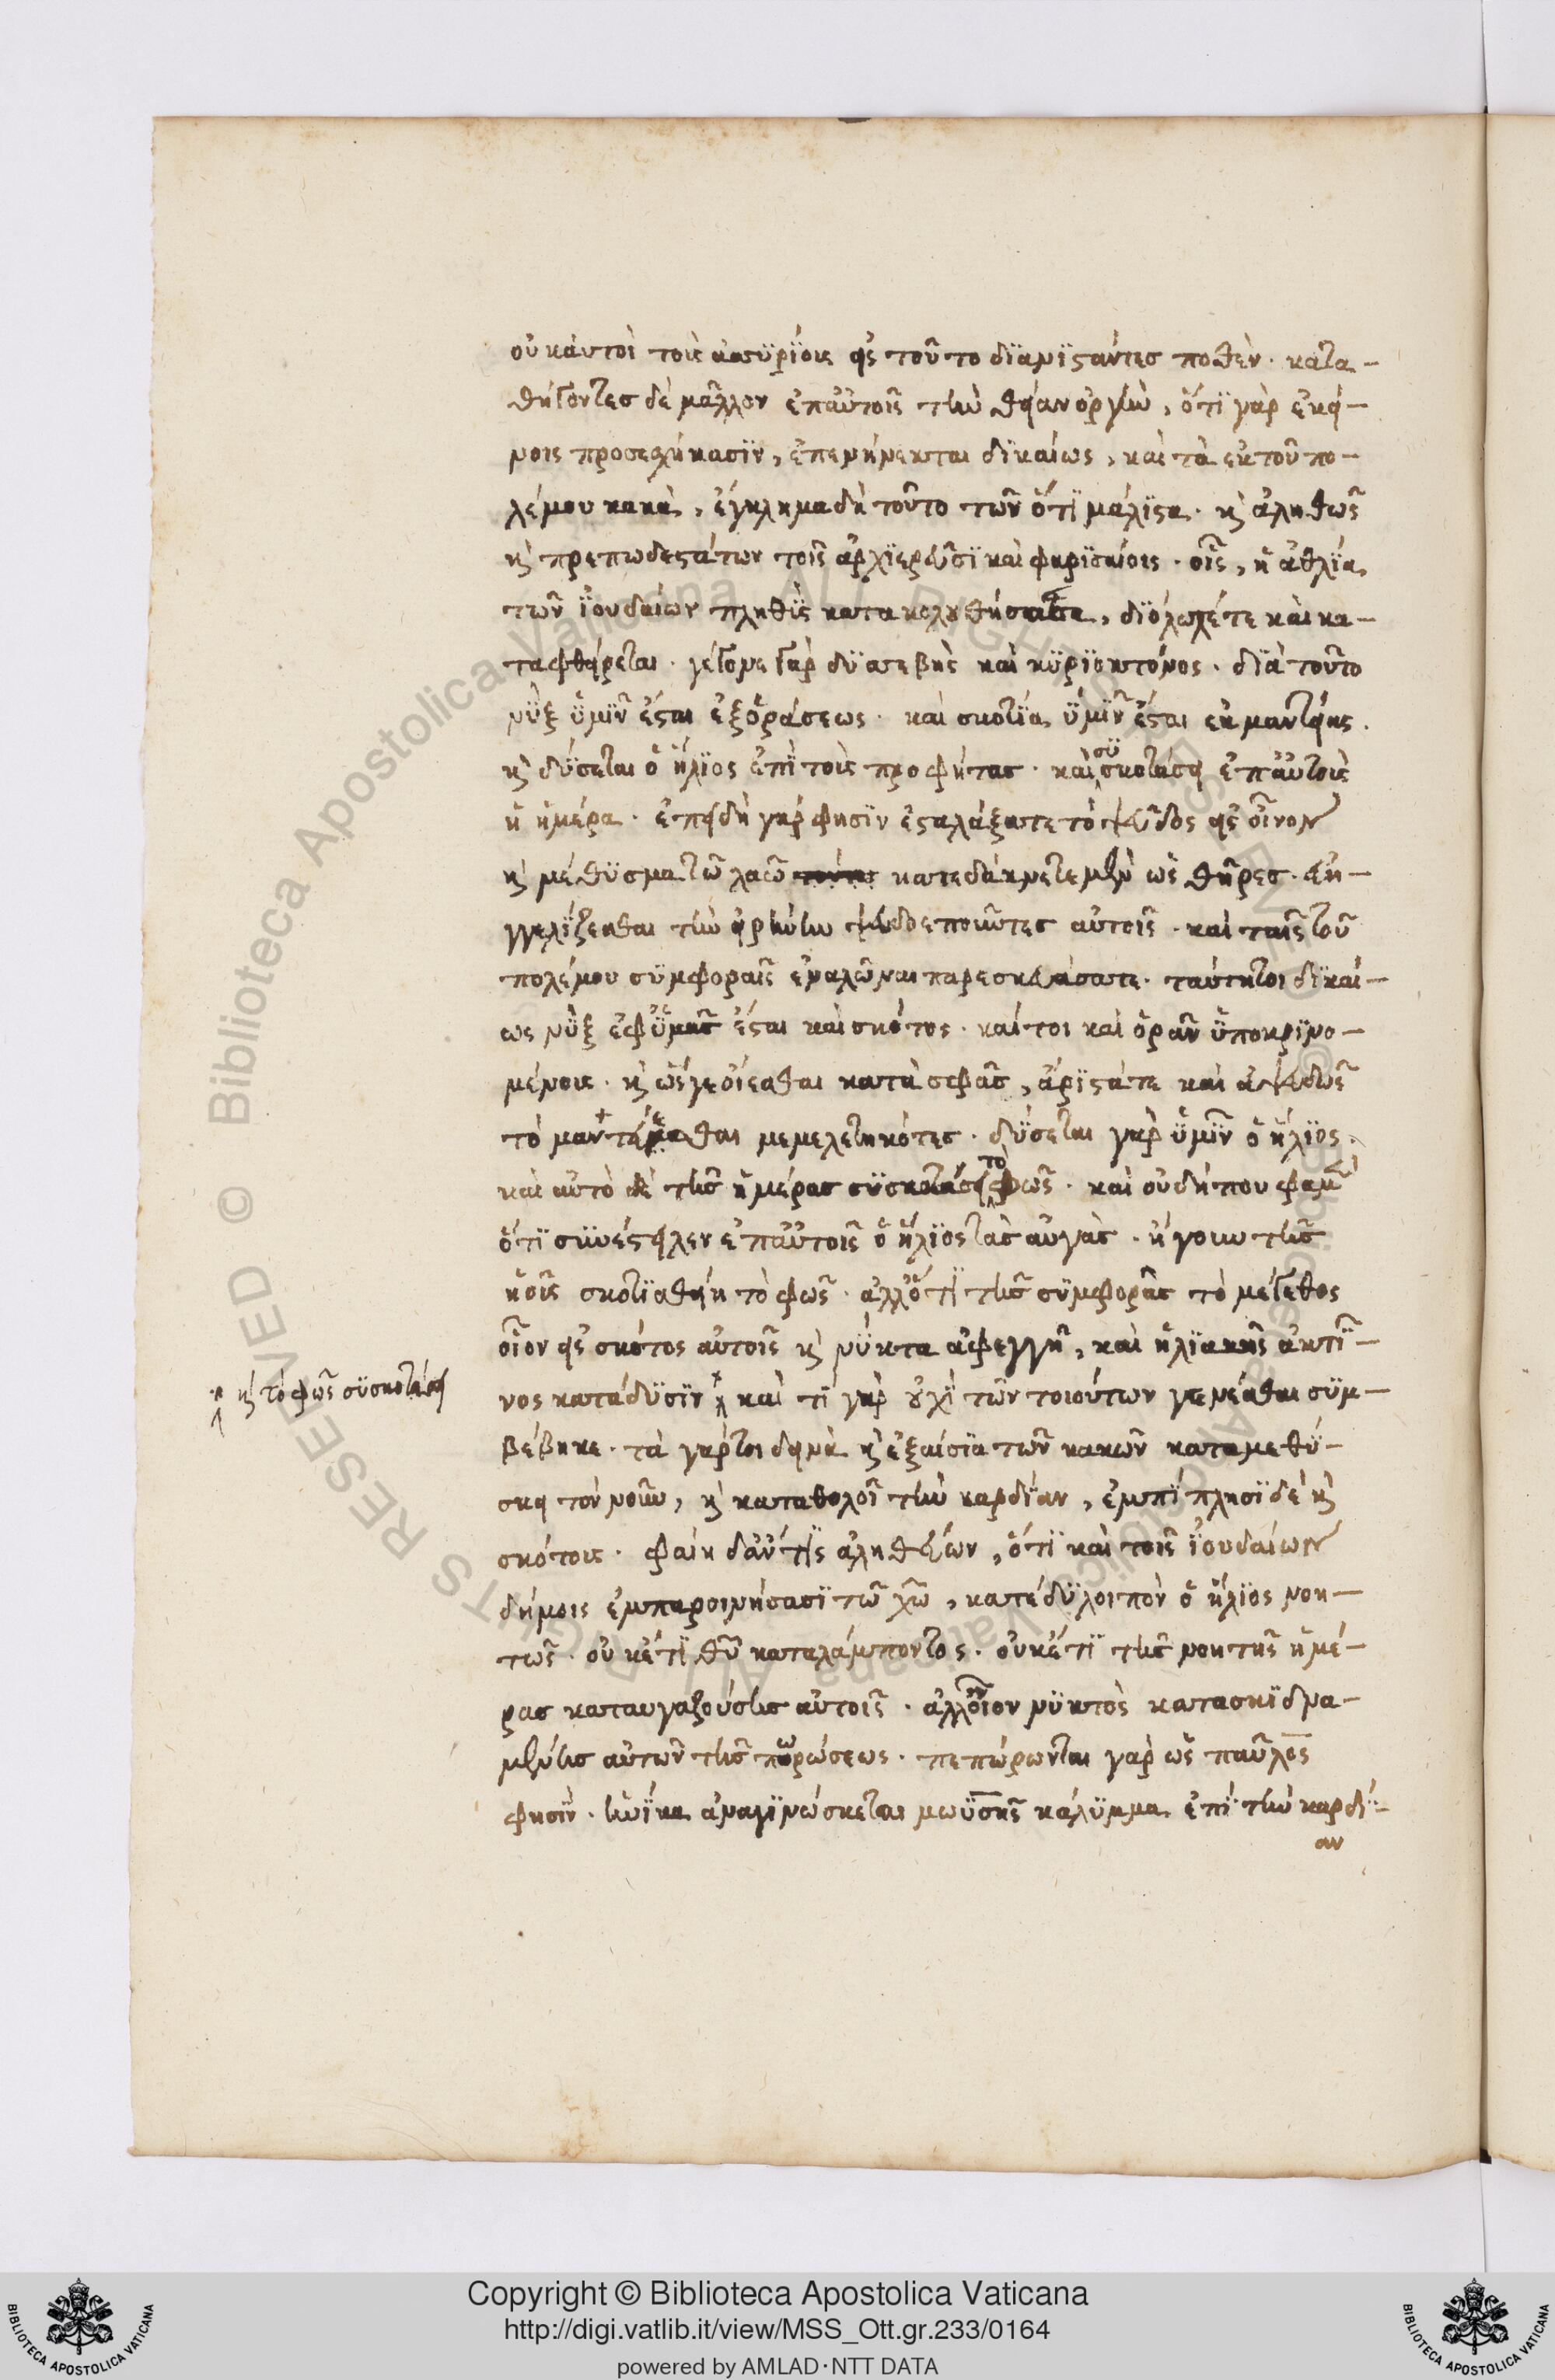 οὐκ αὐτοὶ τοῖς ἀσσυρίοις εἰς τοῦτο διανιστάντες ποθὲν. κατα-
θήγοντες δὲ μᾶλλον ἐπ αὐτοῖς τὴν θείαν ὀργὴν, ὅτι γὰρ ἐκεί-
νοις προσεσχήκασιν, ἐπενήνεκται δικαίως, καὶ τὰ ἐκ τοῦ πο-
λέμου κακὰ, ἔγκλημα δὴ τοῦτο τῶν ὅτι μάλιστα. κ ἀληθῶς
κ πρεπωδεστάτων τοῖς ἀρχιερεῦσι καὶ φαρισαίοις. οἷς, ἡ ἀθλία
τῶν ἰουδαίων πληθὺς κατακολουθήσασα, διόλωλέ τε καὶ κα-
ταφθείρεται. γέγονε γὰρ δυσσεβὴς καὶ κυριοκτόνος. διὰ τοῦτο
νὺξ ὑμῖν ἔσται ἐξ ὁράσεως. καὶ σκοτία ὑμῖν ἔσται ἐκ μαντείας.
κ δύσεται ὁ ἥλιος ἐπὶ τοὺς προφήτας. καὶ συσκοτάσει ἐπ αὐτοὺς
ἡ ἡμέρα. ἐπειδὴ γάρ φησιν ἐσταλάξατε τὸ ψεῦδος εἰς οἶνον
κ μέθυσμα τῶ λαῶ κατεδάκνετε μὲν ὡς θῆρες. εὐη-
γγελίζεσθαι τὴν εἰρήνην ψευδοεποῦντες αὐτοῖς. καὶ ταῖς τοῦ
πολέμου συμφοραῖς ἐναλῶναι παρεσκευάσατε. ταύτητοι δικαί-
ως νὺξ ἐφ ὑμᾶς ἔσται καὶ σκότος. καίτοι καὶ ὁρᾶν ὑποκρινο-
μένοις. κ ὥς γε οἴεσθαι κατὰ σφᾶς, ἄριστά τε καὶ ἀψευδῶς
τὸ μαντεύεσθαι μεμελετηκότες. δύσεται γὰρ ὑμῖν ὁ ἥλιος.
καὶ αὐτὸ δὲ τῆς ἡμέρας συσκοτάσει τὸ φῶς. καὶ οὐδήπου φαμὲν
ὅτι συνέστειλεν ἐπ αὐτοῖς ὁ ἥλιος τὰς αὐγὰς. ἤγουν τῆς
ἠοῦς σκοτισθείη τὸ φῶς. ἀλλ ὅτι τῆς συμφορᾶς τὸ μέγεθος
οἷον εἰς σκότος αὐτοῖς κ νύκτα ἀφεγγῆ, καὶ ἡλιακῆς ἀκτῖ-
νος κατάδυσιν καὶ τί γὰρ οὐχὶ τῶν τοιούτων γενέσθαι συμ-
κ τὸ φῶς συσκοτάσει
βέβηκε. τὰ γάρ τοι δεινὰ κ ἐξαίσια τῶν κακῶν καταμεθύ-
σκει τὸν νοῦν, κ καταθολοῖ τὴν καρδίαν, ἐμπίπλησι δὲ κ
σκότους. φαίη δ ἄν τις ἀληθεύων, ὅτι καὶ τοῖς ἰουδαίων
δήμοις ἐμπαροινήσασι τῶ χῶ, κατέδυ λοιπὸν ὁ ἥλιος νοη-
τῶς. οὐκέτι θῦ καταλάμποντος. οὐκέτι τῆς νοητῆς ἡμέ-
ρας καταυγαζούσης αὐτοῖς. ἀλλ οἷον νυκτὸς κατασκιδνα-
μένης αὐτῶν τῆς πωρώσεως. πεπώρωνται γὰρ ὡς παῦλος
φησὶν. ἡνίκα ἀναγινώσκεται μωϋσῆς κάλυμμα ἐπὶ τὴν καρδί-
αν